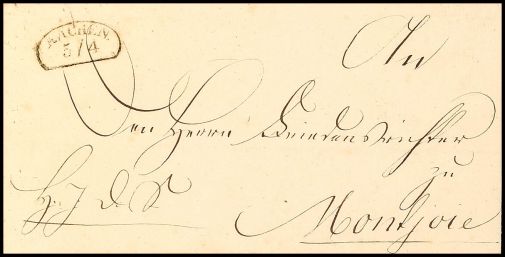 AACHEN.
5/4
An
den Herrn Friedensrichter
zu
Montjoie
H. J. d. S.